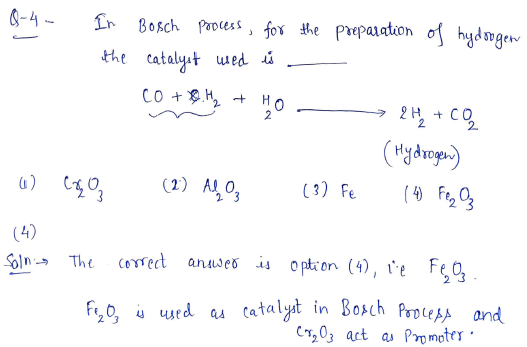 Q-4 - In Bosch Process, for the preparation of hydrogen
the catalyst used is ______
CO + H₂ + H₂O ⟶ 2H₂ + CO₂
(Hydrogen)
(1) Cr₂O₃ (2) Al₂O₃ (3) Fe (4) Fe₂O₃
(4)
Soln:→ The correct answer is option (4), i.e Fe₂O₃.
Fe₂O₃ is used as catalyst in Bosch Process and
Cr₂O₃ act as Promoter.